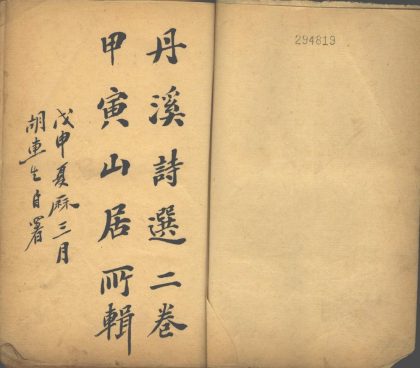 丹溪詩選二卷
甲寅山居所輯
戊申夏厤三月
胡車生自署
294819